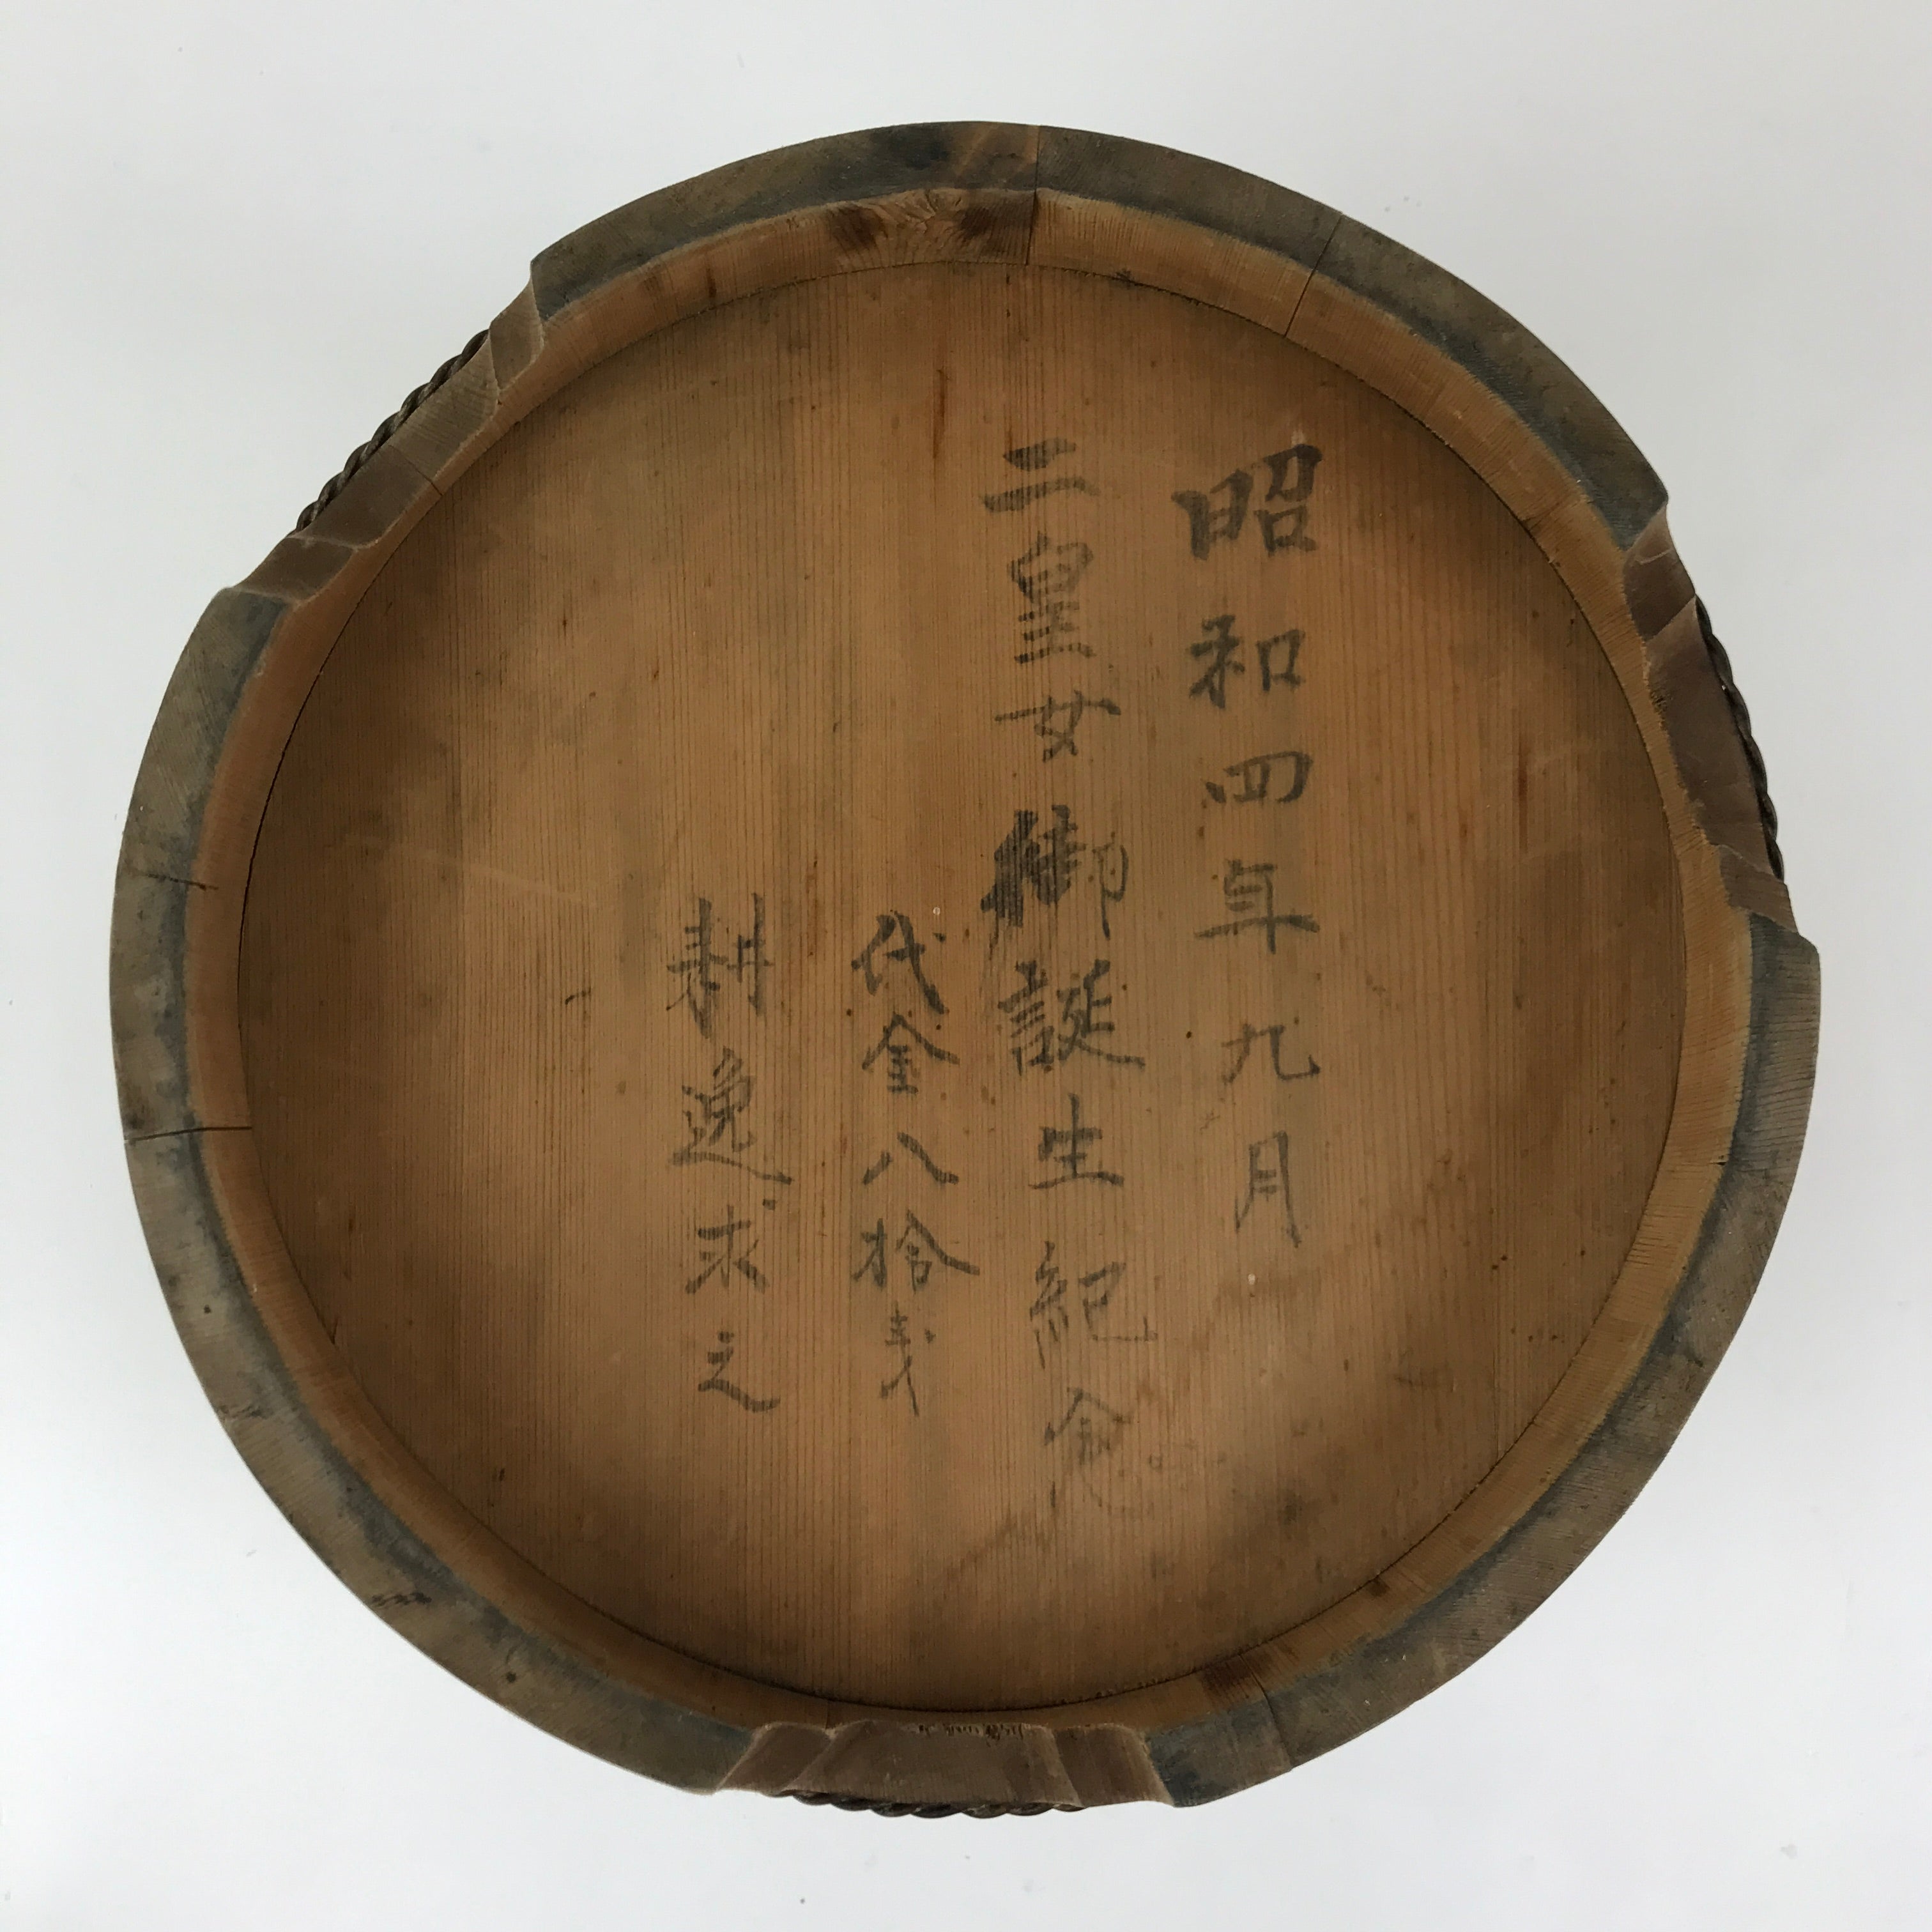 昭和四年九月
三皇女御誕生紀念
代金八拾
耕逸求之